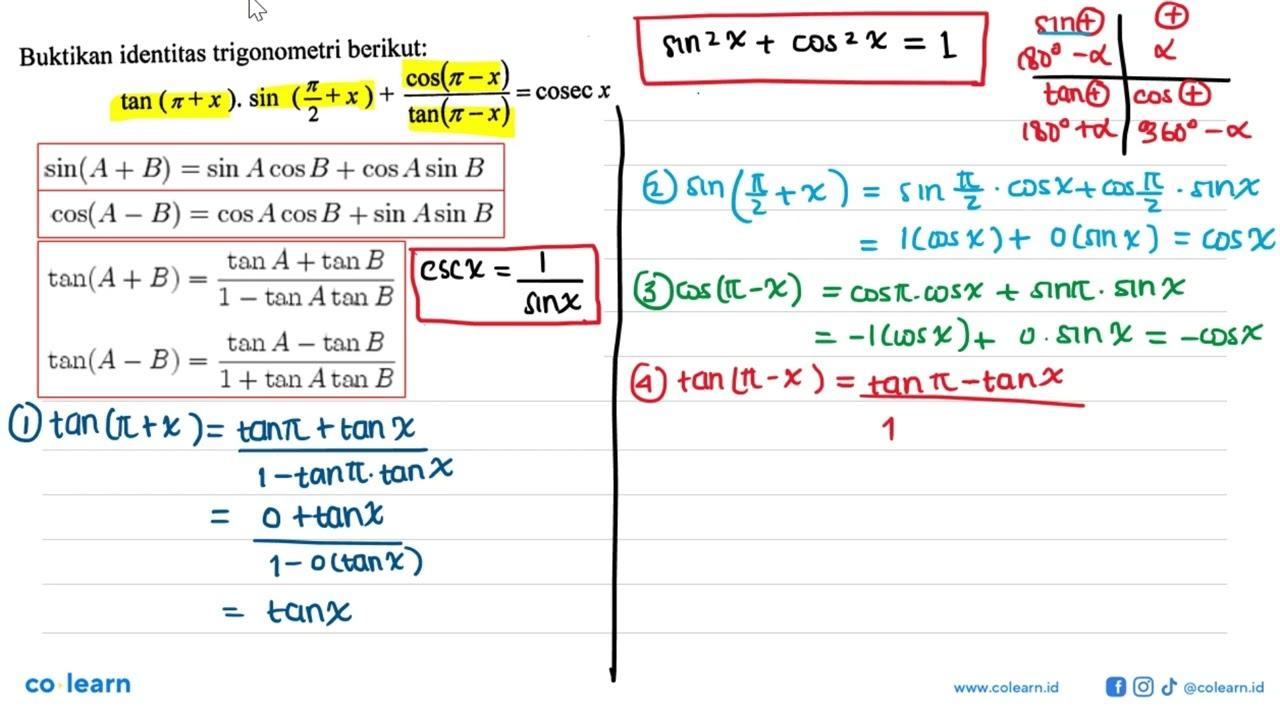 Buktikan identitas trigonometri berikut:
tan (π + x). sin (π/2 + x) + cos(π − x)/tan(π − x) = cosec x
sin(A + B) = sin A cos B + cos A sin B
cos(A − B) = cos A cos B + sin A sin B
tan(A + B) = (tan A + tan B)/(1 − tan A tan B)
tan(A − B) = (tan A − tan B)/(1 + tan A tan B)
csc x = 1/sin x
① tan(π + x) = (tan π + tan x)/(1 − tan π . tan x)
= (0 + tan x)/(1 − 0(tan x))
= tan x
sin²x + cos²x = 1
sin ⊕
180° − α
⊕
α
tan ⊕
180° + α
cos ⊕
360° − α
② sin(π/2 + x) = sin π/2 . cos x + cos π/2 . sin x
= 1(cos x) + 0(sin x) = cos x
③ cos(π − x) = cos π . cos x + sin π . sin x
= −1(cos x) + 0 . sin x = −cos x
④ tan(π − x) = (tan π − tan x)/1
co learn
www.colearn.id
@colearn.id